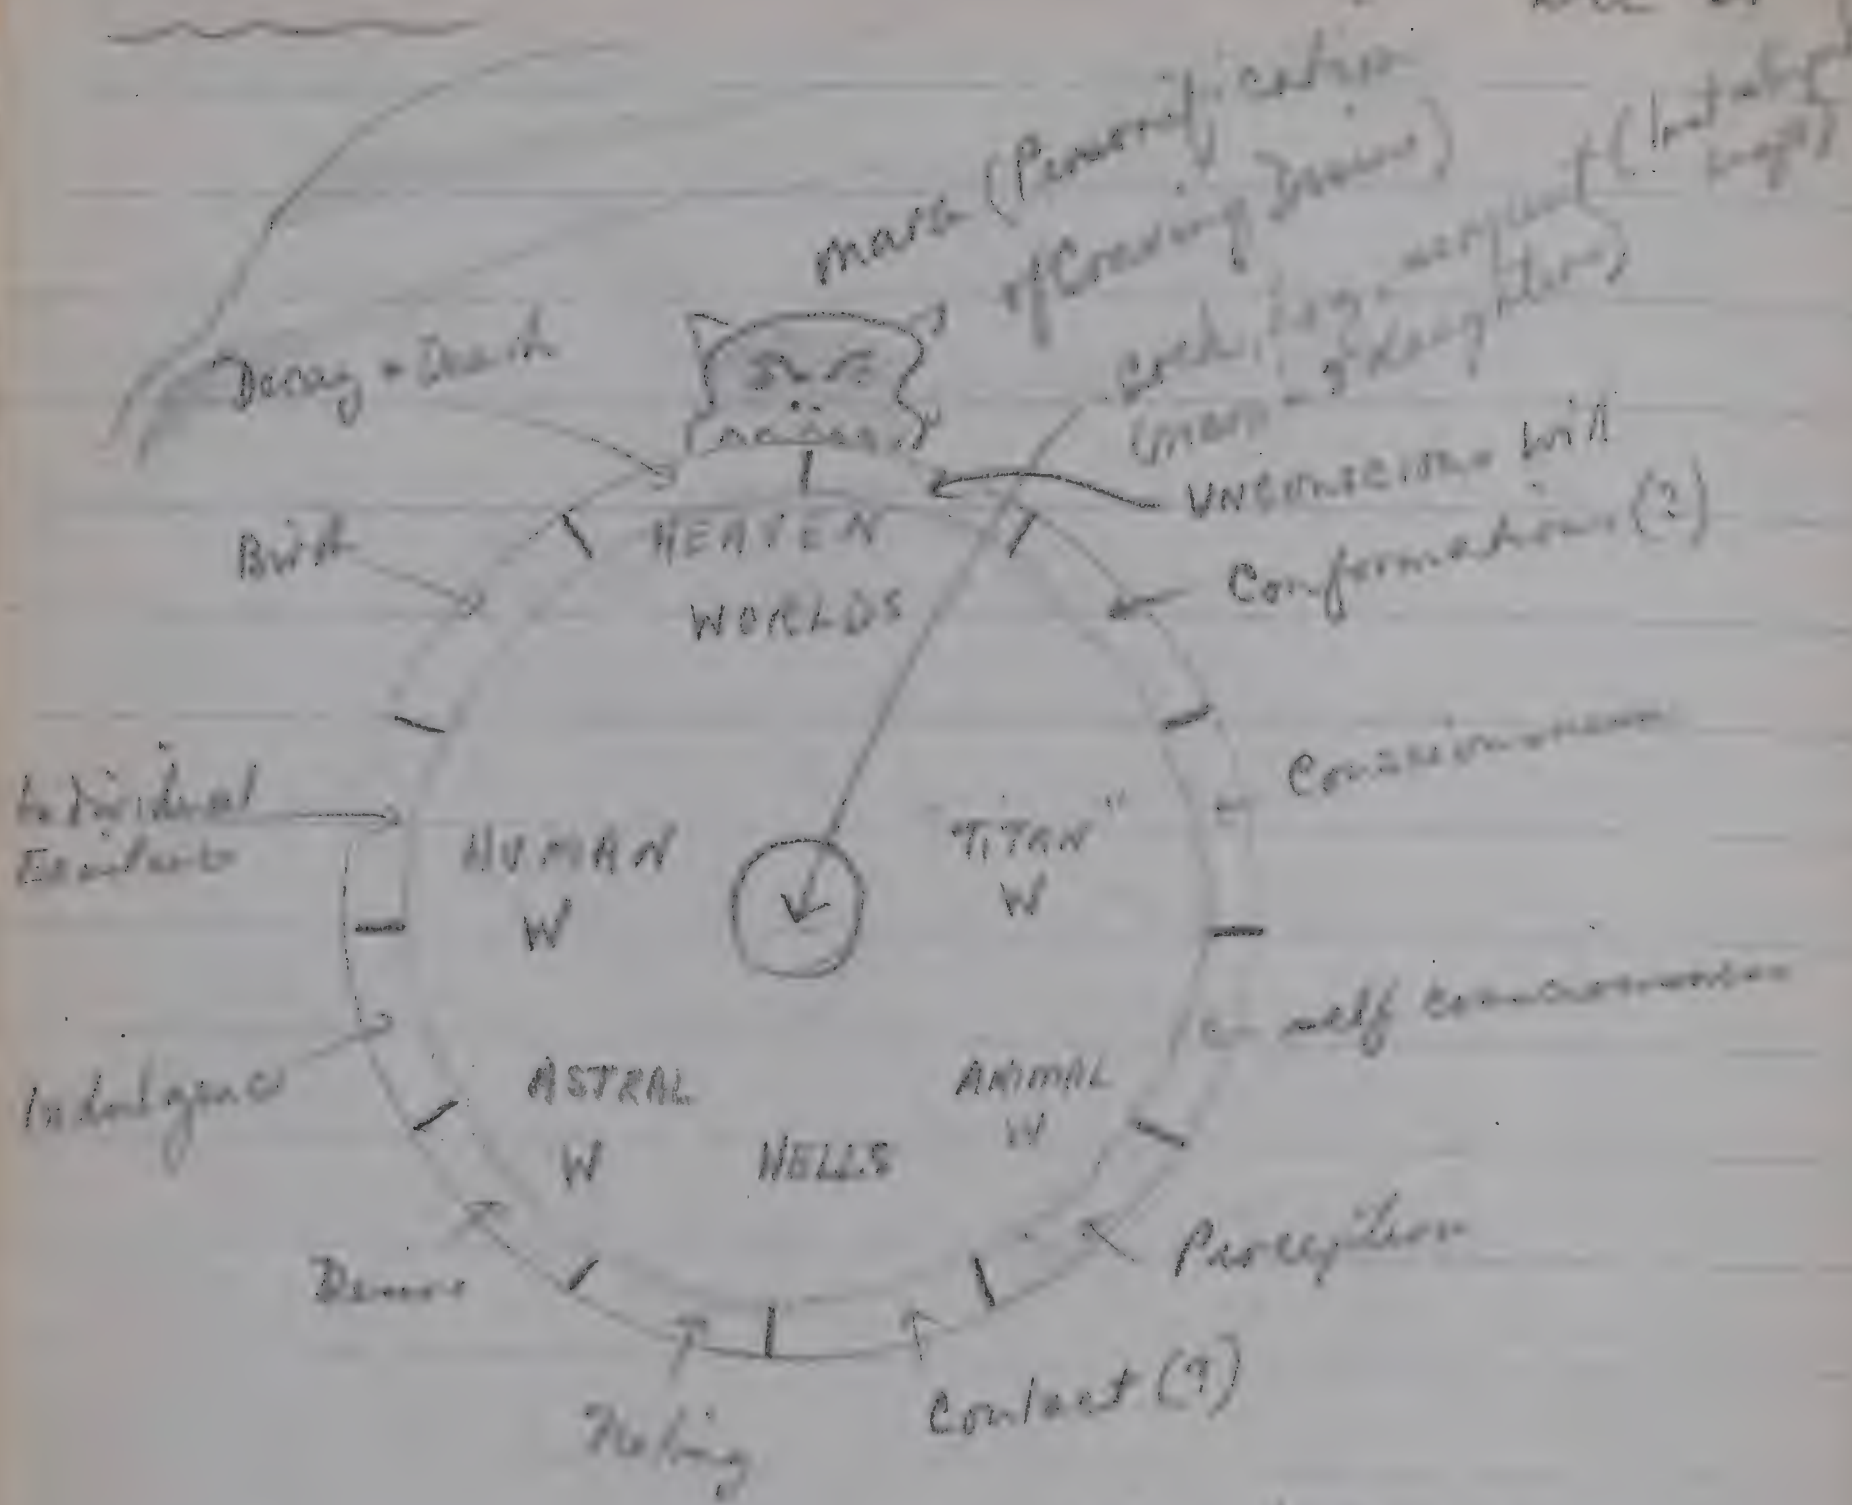 Mara (Personification
of Craving Desire)
Cock, hog, serpent (lust
(man - 3 daughters)
Decay - Death
UNCONSCIOUS Will
Birth
HEAVEN
WORLDS
Conformations (?)
Consciousness
Individual
Existence
HUMAN
W
"TITAN"
W
self consciousness
Indulgence
ASTRAL
W
HELLS
ANIMAL
W
Perception
Desire
Feeling
Contact (?)